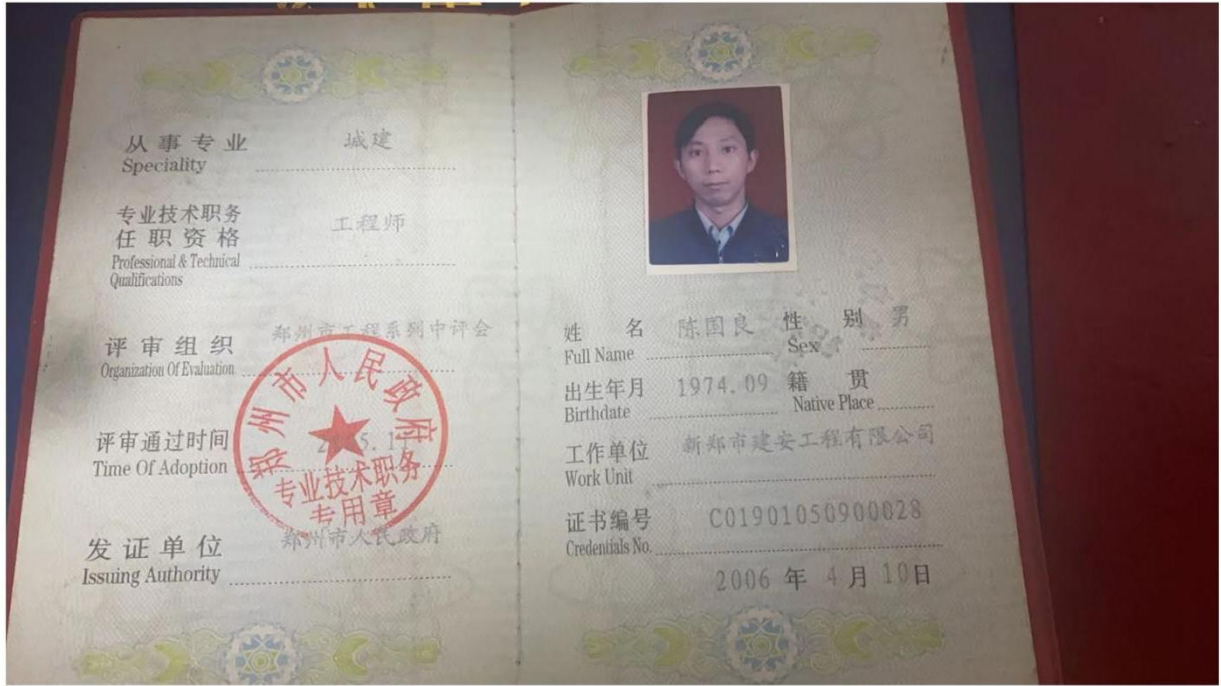 从事专业 城建
Speciality
专业技术职务
任职资格 工程师
Professional & Technical
Qualifications
评审组织 郑州市工程系列中评会
Organization Of Evaluation
评审通过时间
Time Of Adoption
郑州市人民政府
专业技术职务
专用章
发证单位 郑州市人民政府
Issuing Authority
姓名 陈国良 性别 男
Full Name Sex
出生年月 1974.09 籍贯
Birthdate Native Place
工作单位 新郑市建安工程有限公司
Work Unit
证书编号 C01901050900028
Credentials No.
2006 年 4 月 10 日